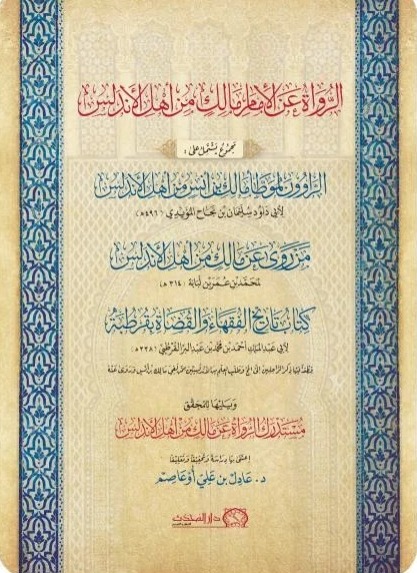 الرواة عن الإمام مالك من أهل الأندلس
مجموع يشتمل على :
الراوون لموطأ مالك بن أنس من أهل الأندلس
لأبي داود سليمان بن نجاح المؤيدي (٤٩٦هـ)
من روى عن مالك من أهل الأندلس
لمحمد بن عمر بن لبابة (٣١٤هـ)
كتاب تاريخ الفقهاء والقضاة بقرطبة
لأبي عبد الملك أحمد بن محمد بن عبد البر القرطبي (٣٣٨هـ)
ويليها للمحقق
مستدرك الرواة عن مالك من أهل الأندلس
اعتنى بها دراسة وتحقيقا وتعليقا
د. عادل بن علي أوعاصم
دار الحديث